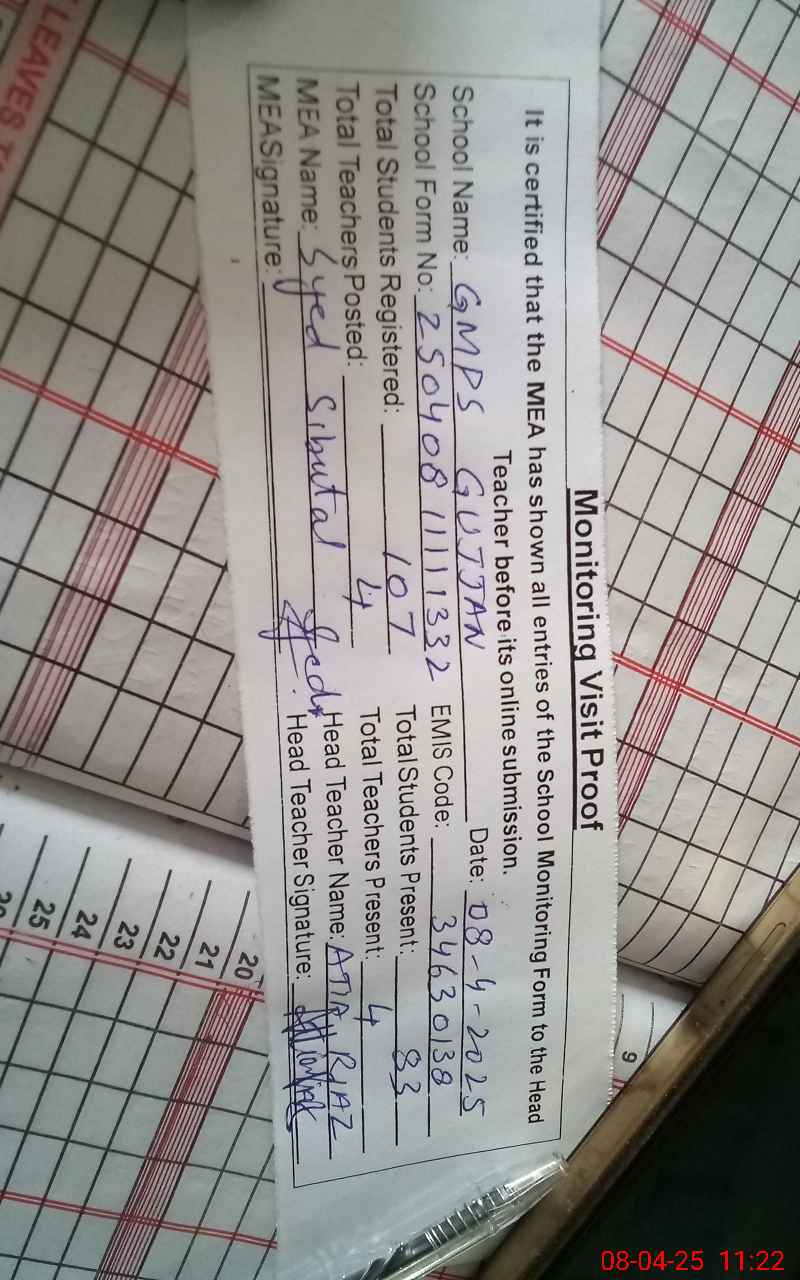 Monitoring Visit Proof
It is certified that the MEA has shown all entries of the School Monitoring Form to the Head
Teacher before its online submission.
School Name: GMPS GUJJAN Date: 08-4-2025
School Form No: 25040811111332 EMIS Code: 34630138
Total Students Registered: 107 Total Students Present: 83
Total Teachers Posted: 4 Total Teachers Present: 4
MEA Name: Syed Sibutal Head Teacher Name: ATIA RIAZ
MEASignature: Head Teacher Signature:
LEAVES
9
20
21
22
23
24
25
08-04-25 11:22